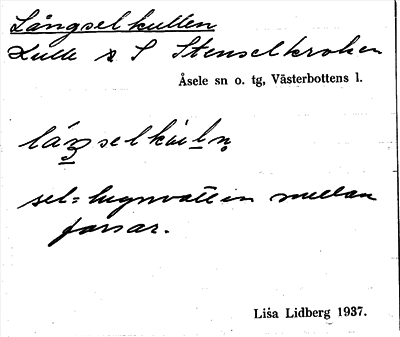 Långselkullen
Kulle s S Stenselkroken
Åsele sn o. tg, Västerbottens l.
sel = lugnvatten mellan
forsar.
Lisa Lidberg 1937.